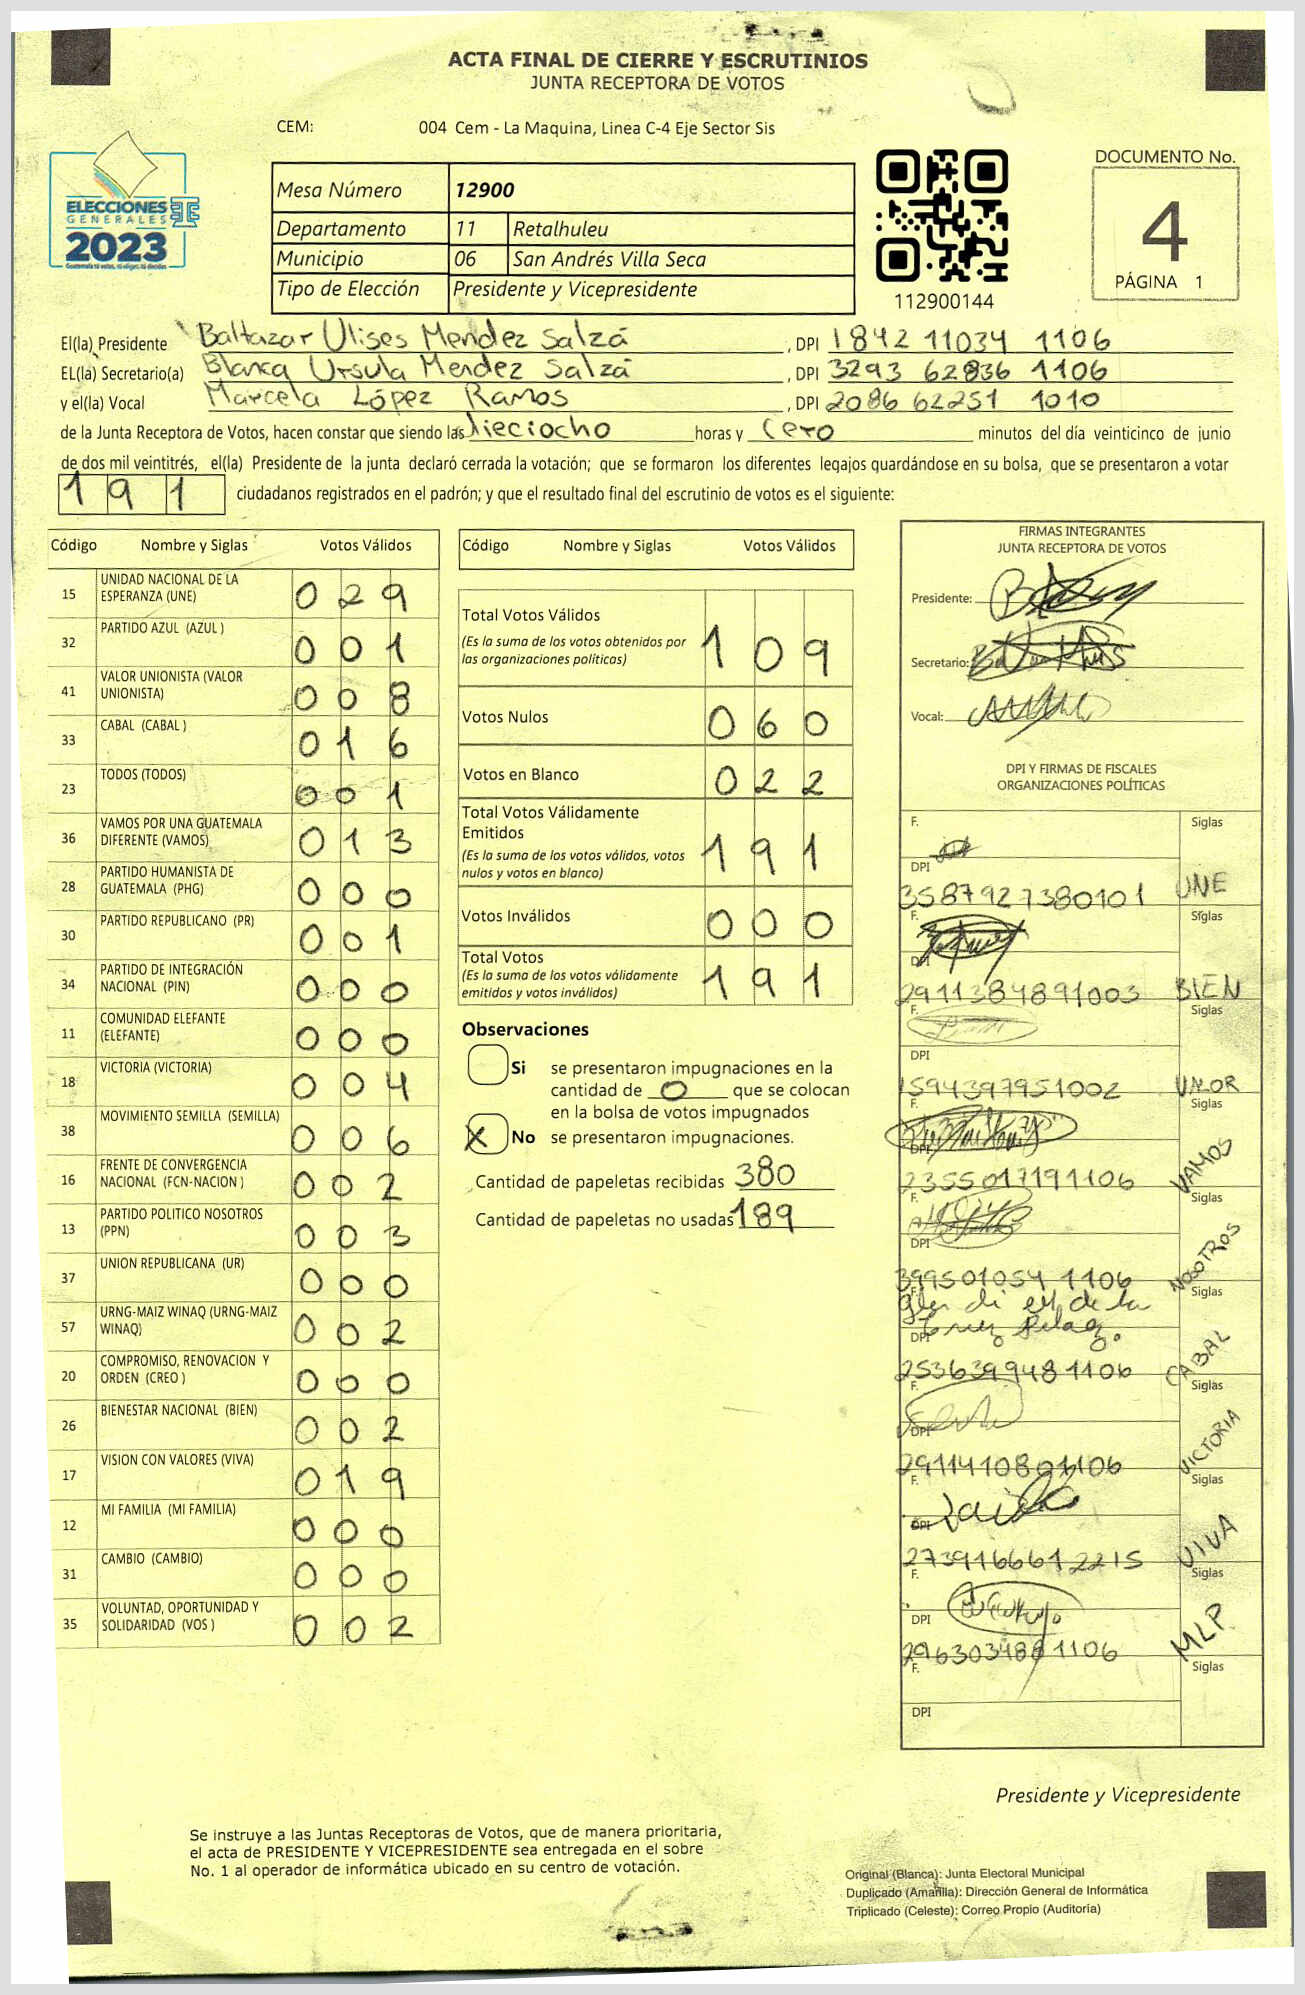 ACTA FINAL DE CIERRE Y ESCRUTINIOS
JUNTA RECEPTORA DE VOTOS
CEM: 004 Cem - La Maquina, Linea C-4 Eje Sector Sis
ELECCIONES
GENERALES
2023
Guatemala tú votas, tú eliges, tú decides
Mesa Número 12900
Departamento 11 Retalhuleu
Municipio 06 San Andrés Villa Seca
Tipo de Elección Presidente y Vicepresidente
112900144
DOCUMENTO No.
4
PÁGINA 1
El(la) Presidente Baltazar Ulises Mendez Salzá, DPI 1842 11034 1106
EL(la) Secretario(a) Blanca Ursula Mendez Salzá, DPI 3293 62836 1106
y el(la) Vocal Marcela López Ramos, DPI 2086 62251 1010
de la Junta Receptora de Votos, hacen constar que siendo las dieciocho horas y cero minutos del día veinticinco de junio
de dos mil veintitrés, el(la) Presidente de la junta declaró cerrada la votación; que se formaron los diferentes legajos guardándose en su bolsa, que se presentaron a votar
191 ciudadanos registrados en el padrón; y que el resultado final del escrutinio de votos es el siguiente:
Código Nombre y Siglas Votos Válidos
15 UNIDAD NACIONAL DE LA ESPERANZA (UNE) 029
32 PARTIDO AZUL (AZUL ) 001
41 VALOR UNIONISTA (VALOR UNIONISTA) 008
33 CABAL (CABAL ) 016
23 TODOS (TODOS) 001
36 VAMOS POR UNA GUATEMALA DIFERENTE (VAMOS) 013
28 PARTIDO HUMANISTA DE GUATEMALA (PHG) 000
30 PARTIDO REPUBLICANO (PR) 001
34 PARTIDO DE INTEGRACIÓN NACIONAL (PIN) 000
11 COMUNIDAD ELEFANTE (ELEFANTE) 000
18 VICTORIA (VICTORIA) 004
38 MOVIMIENTO SEMILLA (SEMILLA) 006
16 FRENTE DE CONVERGENCIA NACIONAL (FCN-NACION ) 002
13 PARTIDO POLITICO NOSOTROS (PPN) 003
37 UNION REPUBLICANA (UR) 000
57 URNG-MAIZ WINAQ (URNG-MAIZ WINAQ) 002
20 COMPROMISO, RENOVACION Y ORDEN (CREO ) 000
26 BIENESTAR NACIONAL (BIEN) 002
17 VISION CON VALORES (VIVA) 019
12 MI FAMILIA (MI FAMILIA) 000
31 CAMBIO (CAMBIO) 000
35 VOLUNTAD, OPORTUNIDAD Y SOLIDARIDAD (VOS ) 002
Código Nombre y Siglas Votos Válidos
Total Votos Válidos
(Es la suma de los votos obtenidos por
las organizaciones políticas) 109
Votos Nulos 060
Votos en Blanco 022
Total Votos Válidamente
Emitidos
(Es la suma de los votos válidos, votos
nulos y votos en blanco) 191
Votos Inválidos 000
Total Votos
(Es la suma de los votos válidamente
emitidos y votos inválidos) 191
Observaciones
Si se presentaron impugnaciones en la
cantidad de 0 que se colocan
en la bolsa de votos impugnados
X No se presentaron impugnaciones.
Cantidad de papeletas recibidas 380
Cantidad de papeletas no usadas 189
FIRMAS INTEGRANTES
JUNTA RECEPTORA DE VOTOS
Presidente:
Secretario:
Vocal:
DPI Y FIRMAS DE FISCALES
ORGANIZACIONES POLÍTICAS
F. Siglas
DPI
3587927380101 UNE
F. Siglas
DPI
2911384891003 BIEN
F. Siglas
DPI
1594397951002 VALOR
F. Siglas
DPI
2355017191106 VAMOS
F. Siglas
DPI
3995010541106 NOSOTROS
F. Siglas
DPI
2536399481106 CABAL
F. Siglas
DPI
2911410801106 VICTORIA
F. Siglas
DPI
2739166612215 VIVA
F. Siglas
DPI
2963034881106 MLP
F. Siglas
DPI
Presidente y Vicepresidente
Se instruye a las Juntas Receptoras de Votos, que de manera prioritaria,
el acta de PRESIDENTE Y VICEPRESIDENTE sea entregada en el sobre
No. 1 al operador de informática ubicado en su centro de votación.
Original (Blanca): Junta Electoral Municipal
Duplicado (Amarilla): Dirección General de Informática
Triplicado (Celeste): Correo Propio (Auditoría)